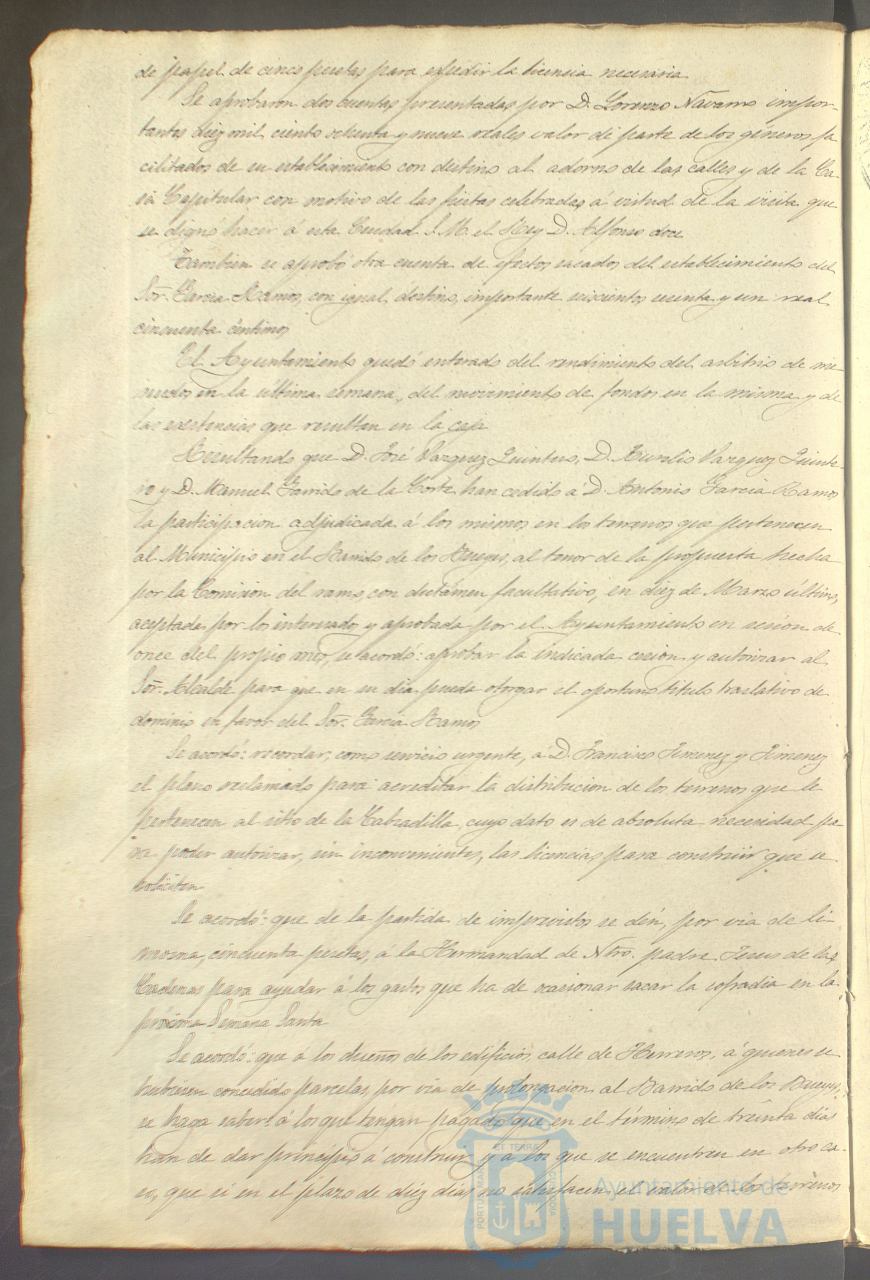 de papel de cinco pesetas para expedir la licencia necesaria
Se aprobaron dos cuentas presentadas por D. Lorenzo Navarro impor-
tantes diez mil ciento setenta y nueve reales valor de parte de los géneros fa
cilitados de su establecimiento con destino al adorno de las calles y de la Ca-
sa Capitular con motivo de las fiestas celebradas á virtud de la visita que
se dignó hacer á esta Ciudad S. M. el Rey D. Alfonso doce
Tambien se aprobó otra cuenta de efectos sacados del establecimiento del
Sor. Garcia Ramos, con igual destino, importante seiscientos sesenta y un real
cincuenta céntimos
El Ayuntamiento quedó enterado del rendimiento del arbitrio de me-
nudos en la última semana, del movimiento de fondos en la misma y de
las existencias que resultan en la caja
Resultando que D. José Vazquez Quintero, D. Aurelio Vazquez Quinte-
ro y D. Manuel Garrido de la Corte han cedido á D. Antonio Garcia Ramos
la participacion adjudicada á los mismos en los terrenos que pertenecen
al Municipio en el Barrido de los Bueyes, al tenor de la propuesta hecha
por la Comision del ramo, con dictámen facultativo, en diez de Marzo último,
aceptada por los interesados y aprobada por el Ayuntamiento en sesion de
once del propio mes, se acordó: aprobar la indicada cesion y autorizar al
Sor. Alcalde para que en su dia pueda otorgar el oportuno titulo traslativo de
dominio en favor del Sor. Garcia Ramos
Se acordó: recordar, como servicio urgente, á D. Francisco Jimenez y Jimenez
el plano reclamado para acreditar la distribucion de los terrenos que le
pertenecen al sitio de la Calzadilla, cuyo dato es de absoluta necesidad pa-
ra poder autorizar, sin inconvenientes, las licencias para construir que se
soliciten
Se acordó: que de la partida de imprevistos se dén, por via de li-
mosna, cincuenta pesetas, á la Hermandad de Ntro. padre Jesus de las
Cadenas para ayudar á los gastos que ha de ocasionar sacar la cofradia en la
próxima Semana Santa
Se acordó: que á los dueños de los edificios, calle de Herreros, á quienes se
hubiesen concedido parcelas, por via de prolongacion al Barrido de los Bueyes,
se haga saber: á los que tengan pagado, que en el término de treinta dias
han de dar principio á construir; y á los que se encuentren en otro ca-
so, que si en el plazo de diez dias no satisfacen, el valor de los terrenos
Ayuntamiento de
HUELVA